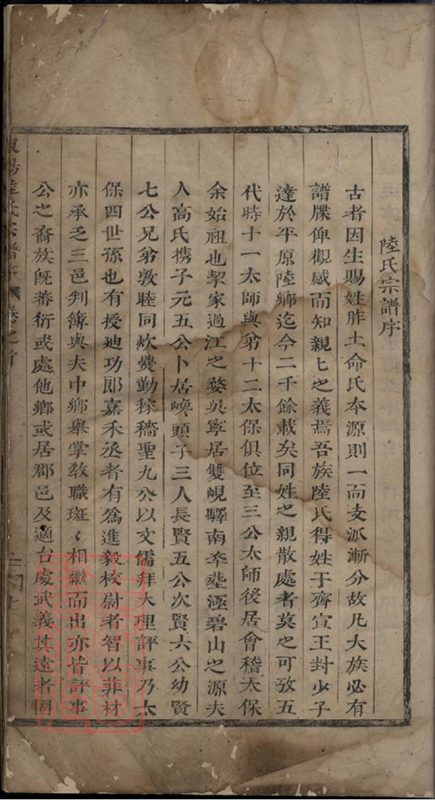 陸氏宗譜序
古者因生賜姓胙土命氏本源則一而支派漸分故凡大族必有
譜牒仰觀感而知親〻之義焉吾族陸氏得姓于齊宣王封少子
達於平原陸鄉迄今二千餘載矣同姓之親散處者莫之可攷五
代時十一太師與弟十二太保俱位至三公太師後居會稽太保
余始祖也挈家過江之婺吳寧居雙峴驛南奉塟極碧山之源夫
人高氏携子元五公卜居峻頭子三人長賢五公次賢六公幼賢
七公兄弟敦睦同炊爨勤稼穡聖九公以文儒拜大理評事乃太
保四世孫也有授廸功郎嘉禾丞者有爲進毅校尉者智以菲材
亦承乏三邑判簿與夫中鄉舉掌敎職斑〻相繼而出亦皆評事
公之裔族旣蕃衍或處他鄉或居郡邑及適台處武義其遠者因
陽陸氏宗譜序 卷之首